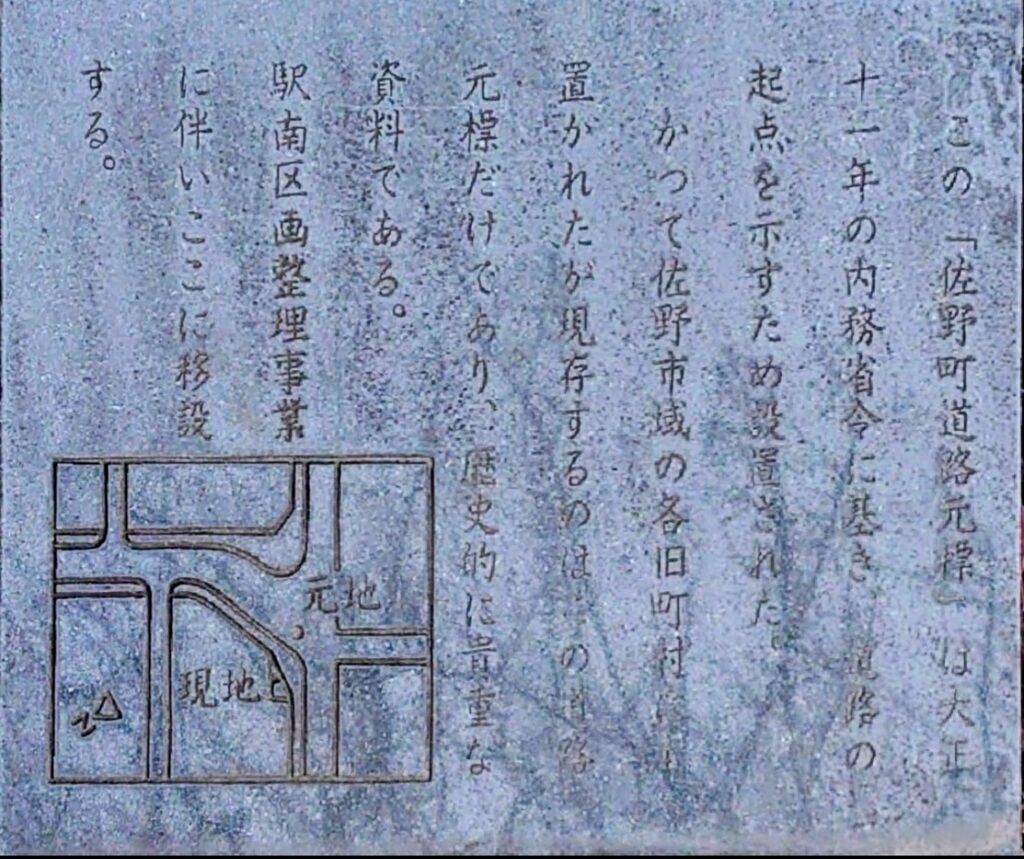 この「佐野町道路元標」は大正
十一年の内務省令に基き、道路の
起点を示すため設置された。
かつて佐野市域の各旧町村にも
置かれたが現存するのはこの道路
元標だけであり、歴史的に貴重な
資料である。
駅南区画整理事業
に伴いここに移設
する。
元地
現地
N